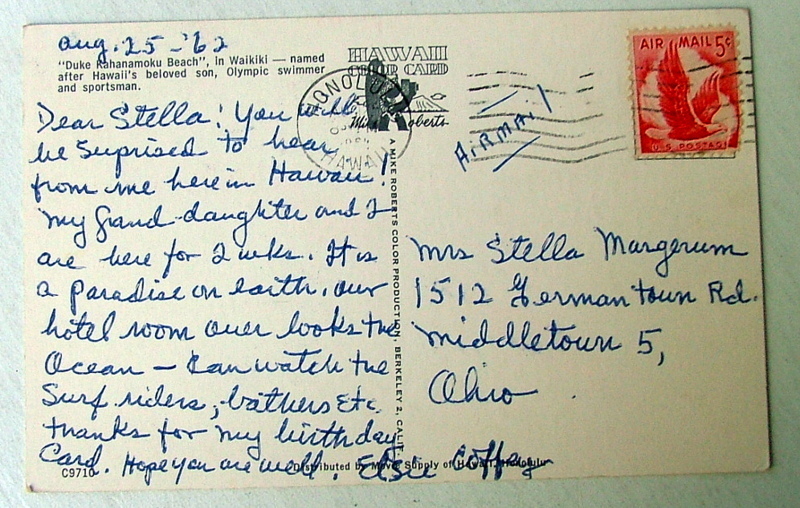 Aug. 25 - '62
"Duke Kahanamoku Beach", in Waikiki — named
after Hawaii's beloved son, Olympic swimmer
and sportsman.
Dear Stella! You will
be Suprised to hear
from me here in Hawaii!
my grand-daughter and I
are here for 2 wks. It is
a paradise on earth, our
hotel room over looks the
Ocean - Can watch the
Surf riders, bathers Etc.
thanks for my birthday
Card. Hope you are well. Elsie Coffey
C9710
Distributed by Movie Supply of Hawaii, Honolulu
A MIKE ROBERTS COLOR PRODUCTION, BERKELEY 2, CALIF.
HAWAII
COLOR CARD
Mike Roberts
HONOLULU
HAWAII
AIRMAIL
AIR MAIL 5¢
U.S. POSTAGE
Mrs Stella Margerum
1512 Germantown Rd.
Middletown 5,
Ohio